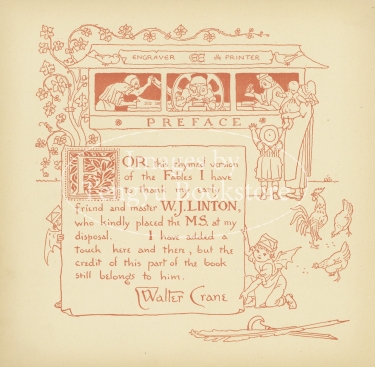 ENGRAVER & PRINTER
PREFACE
FOR this rhymed version
of the Fables I have
to thank my early
friend and master W.J.LINTON,
who kindly placed the MS. at my
disposal. I have added a
touch here and there, but the
credit of this part of the book
still belongs to him.
Walter Crane